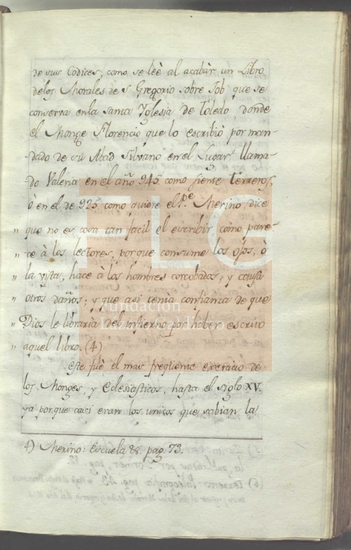 de sus Codices; como se leè al acabar un Libro
de los Morales de Sn Gregorio sobre Job que se
conserva en la Santa Yglesia de Toledo donde
el Monge Florencio que lo escribiò por man-
dado de su Abad Silvano en el Lugar llama-
do Valeria en el año 945 como siente Terreros,
ò en el de 925 como quiere el Pe Merino dice
" que no es cosa tan facil el escribir como pare-
" ce à los lectores, porque consume los ojos, ò
" la vista, hace à los hombres corcobados, y causa
" otros daños; y que asi tenia confianza de que
" Dios le libraria del infierno por haber escrito
" aquel libro. (4)
Este fuè el mas frequente exercicio de
los Monges, y Eclesiasticos, hasta el siglo XV.
ya porque casi eran los unicos que sabian la
4) Merino: Escuela &c. pag. 73.
FLC
Fundación